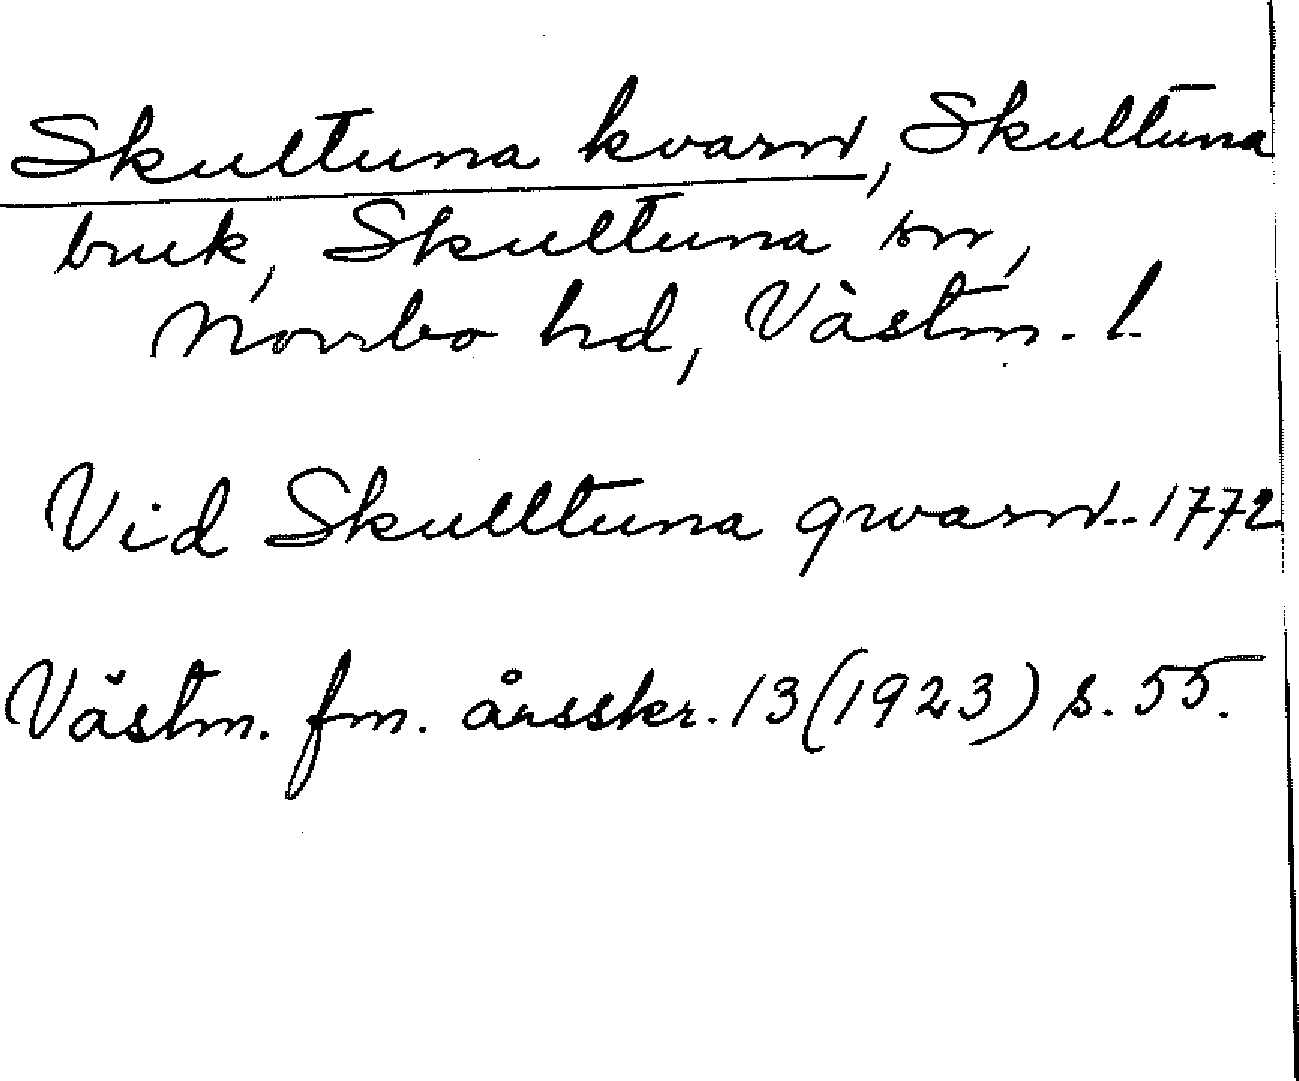 Skultuna kvarn, Skultuna
bruk, Skultuna sn,
Norrbo hd, Västm. l.
Vid Skulltuna qwarn.. 1772
Västm. fm. årsskr. 13 (1923) s. 55.